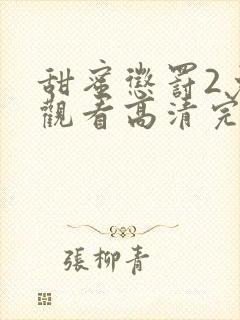 甜蜜懲罰2
觀看高清完
張柳青